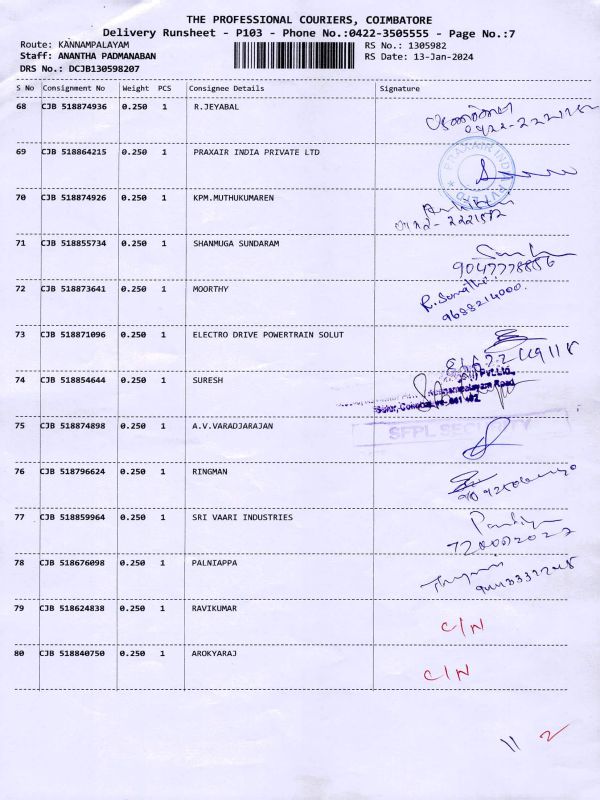 THE PROFESSIONAL COURIERS, COIMBATORE
Delivery Runsheet - P103 - Phone No.:0422-3505555 - Page No.:7
Route: KANNAMPALAYAM RS No.: 1305982
Staff: ANANTHA PADMANABAN RS Date: 13-Jan-2024
DRS No.: DCJB130598207
S No Consignment No Weight PCS Consignee Details Signature
68 CJB 518874936 0.250 1 R.JEYABAL
69 CJB 518864215 0.250 1 PRAXAIR INDIA PRIVATE LTD
PRAXAIR INDIA PVT LTD
70 CJB 518874926 0.250 1 KPM.MUTHUKUMAREN
71 CJB 518855734 0.250 1 SHANMUGA SUNDARAM
72 CJB 518873641 0.250 1 MOORTHY
9688214000
73 CJB 518871096 0.250 1 ELECTRO DRIVE POWERTRAIN SOLUT
74 CJB 518854644 0.250 1 SURESH
Pvt.Ltd.,
75 CJB 518874898 0.250 1 A.V.VARADJARAJAN
SFPL SECURITY
76 CJB 518796624 0.250 1 RINGMAN
77 CJB 518859964 0.250 1 SRI VAARI INDUSTRIES
78 CJB 518676098 0.250 1 PALNIAPPA
79 CJB 518624838 0.250 1 RAVIKUMAR C/N
80 CJB 518840750 0.250 1 AROKYARAJ C/N
11 2